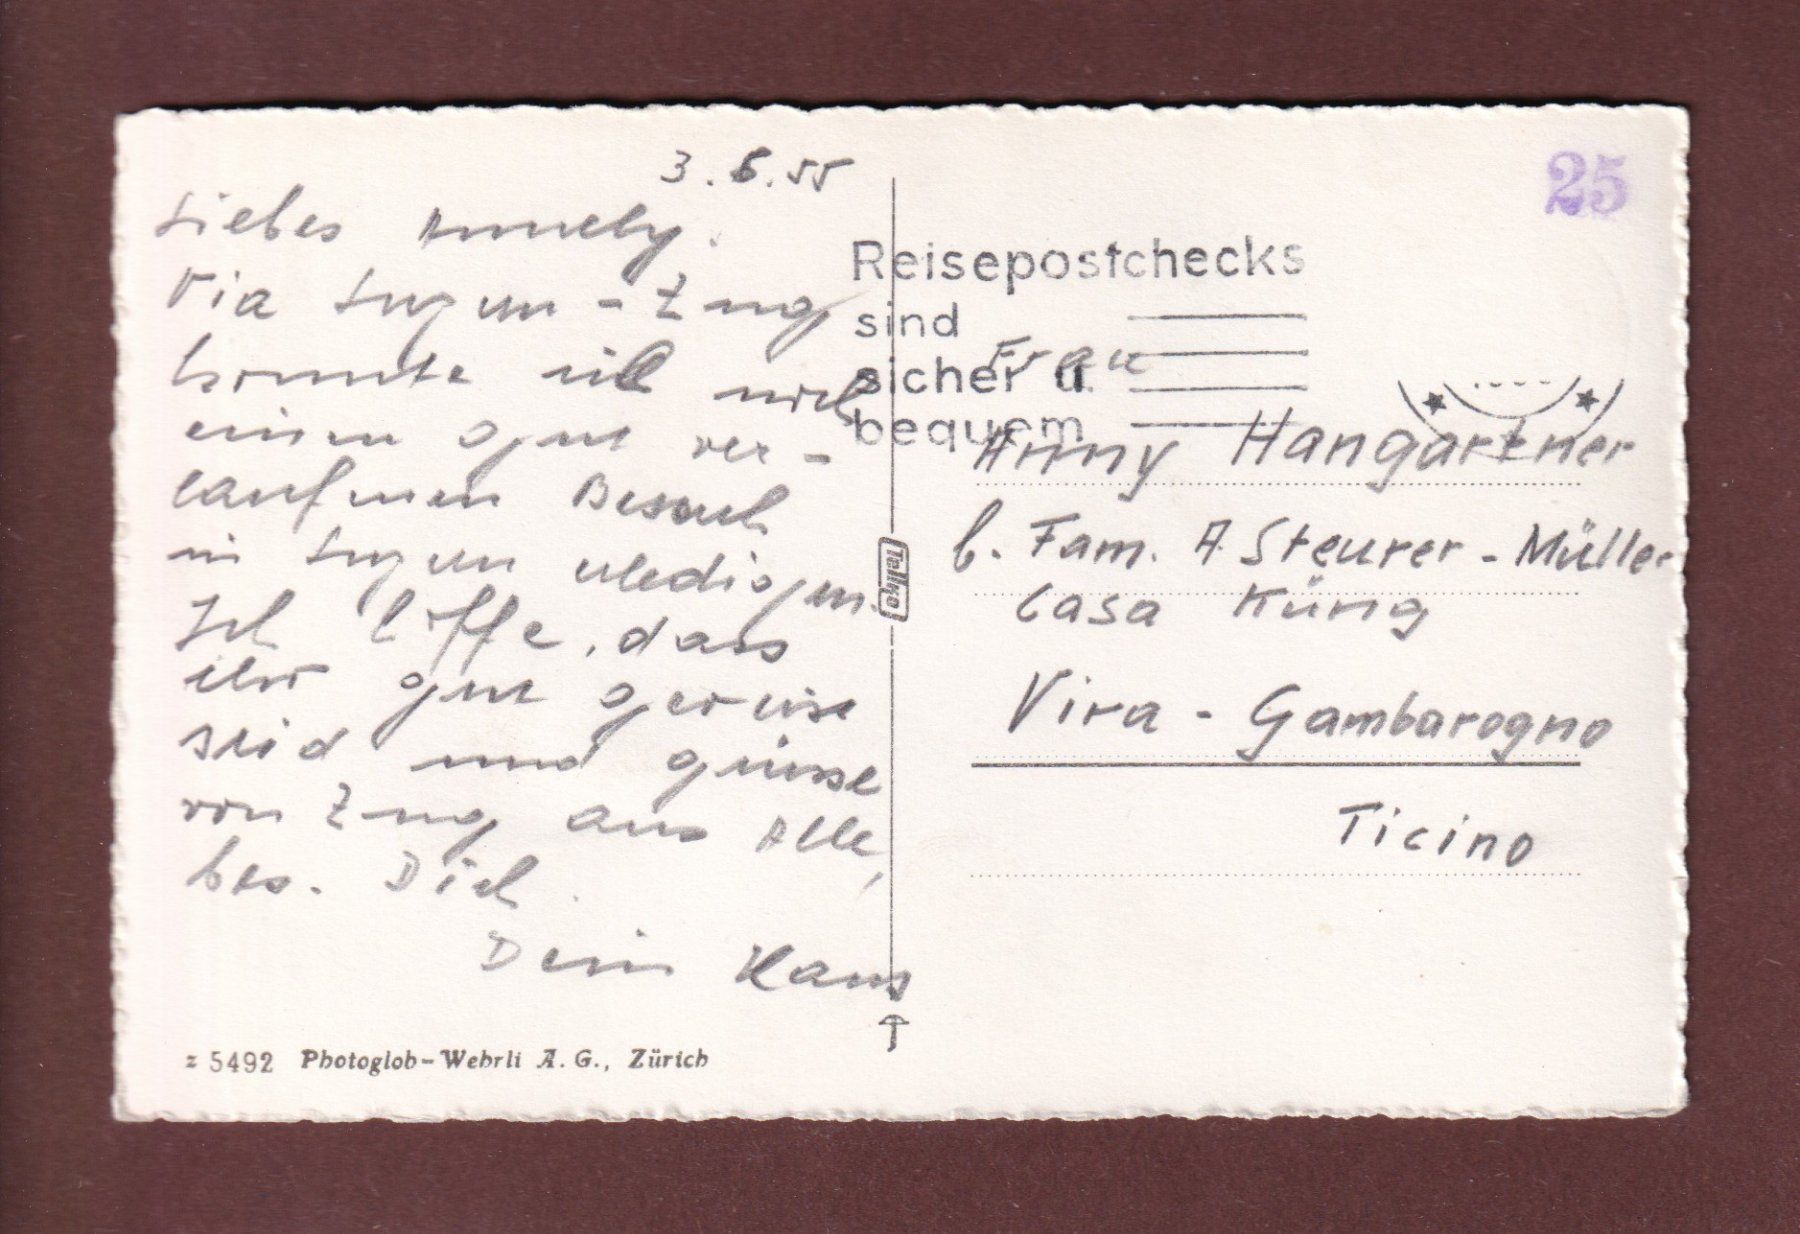 3.6.55
Liebes Annely.
Via Luzern - Zug
konnte ich noch
einen gut ver-
laufenen Besuch
in Luzern erledigen.
Ich hoffe, dass
ihr gut gereist
seid und grüsse
von Zug aus Alle,
bes. Dich.
Dein Hans
z 5492 Photoglob-Wehrli A.G., Zürich
Tellko
25
Reisepostchecks
sind
sicher u.
bequem
Frau
Anny Hangartner
b. Fam. A Steurer - Müller
Casa Küng
Vira - Gambarogno
Ticino